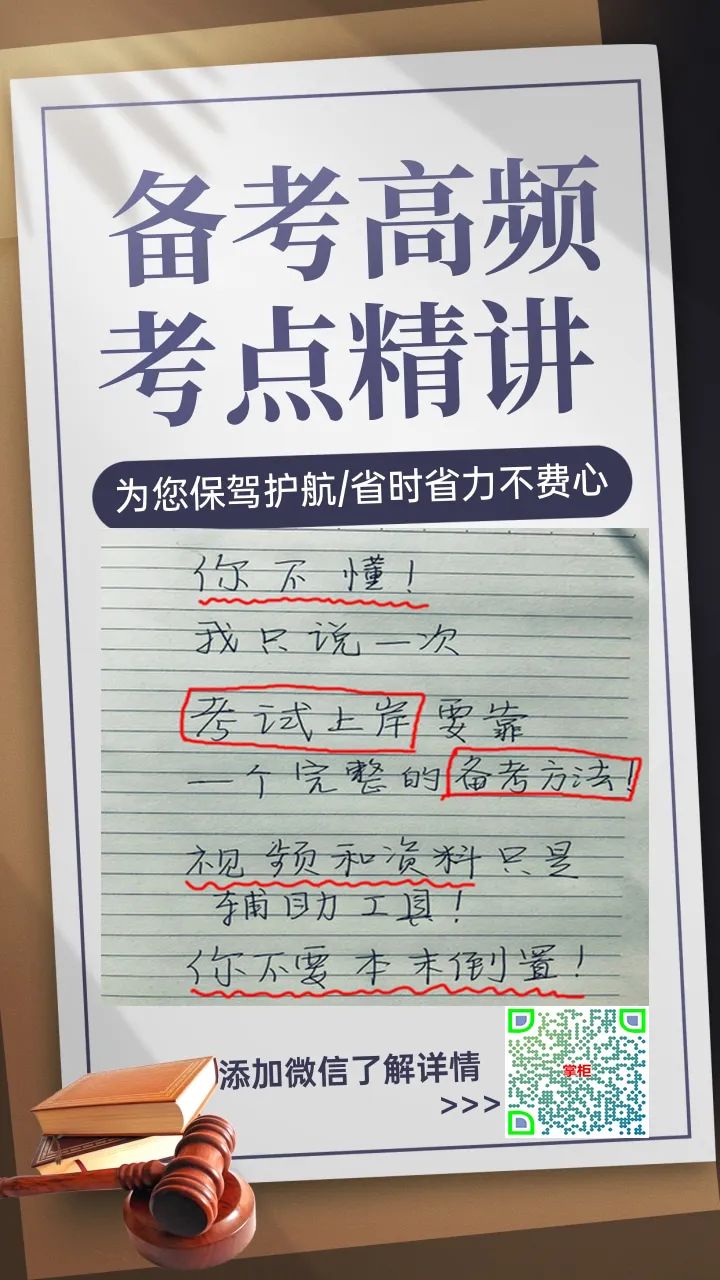 备考高频
考点精讲
为您保驾护航/省时省力不费心
你不懂!
我只说一次
考试上岸要靠
一个完整的备考方法!
视频和资料只是
辅助工具!
你不要本末倒置!
添加微信了解详情
>>>
掌柜